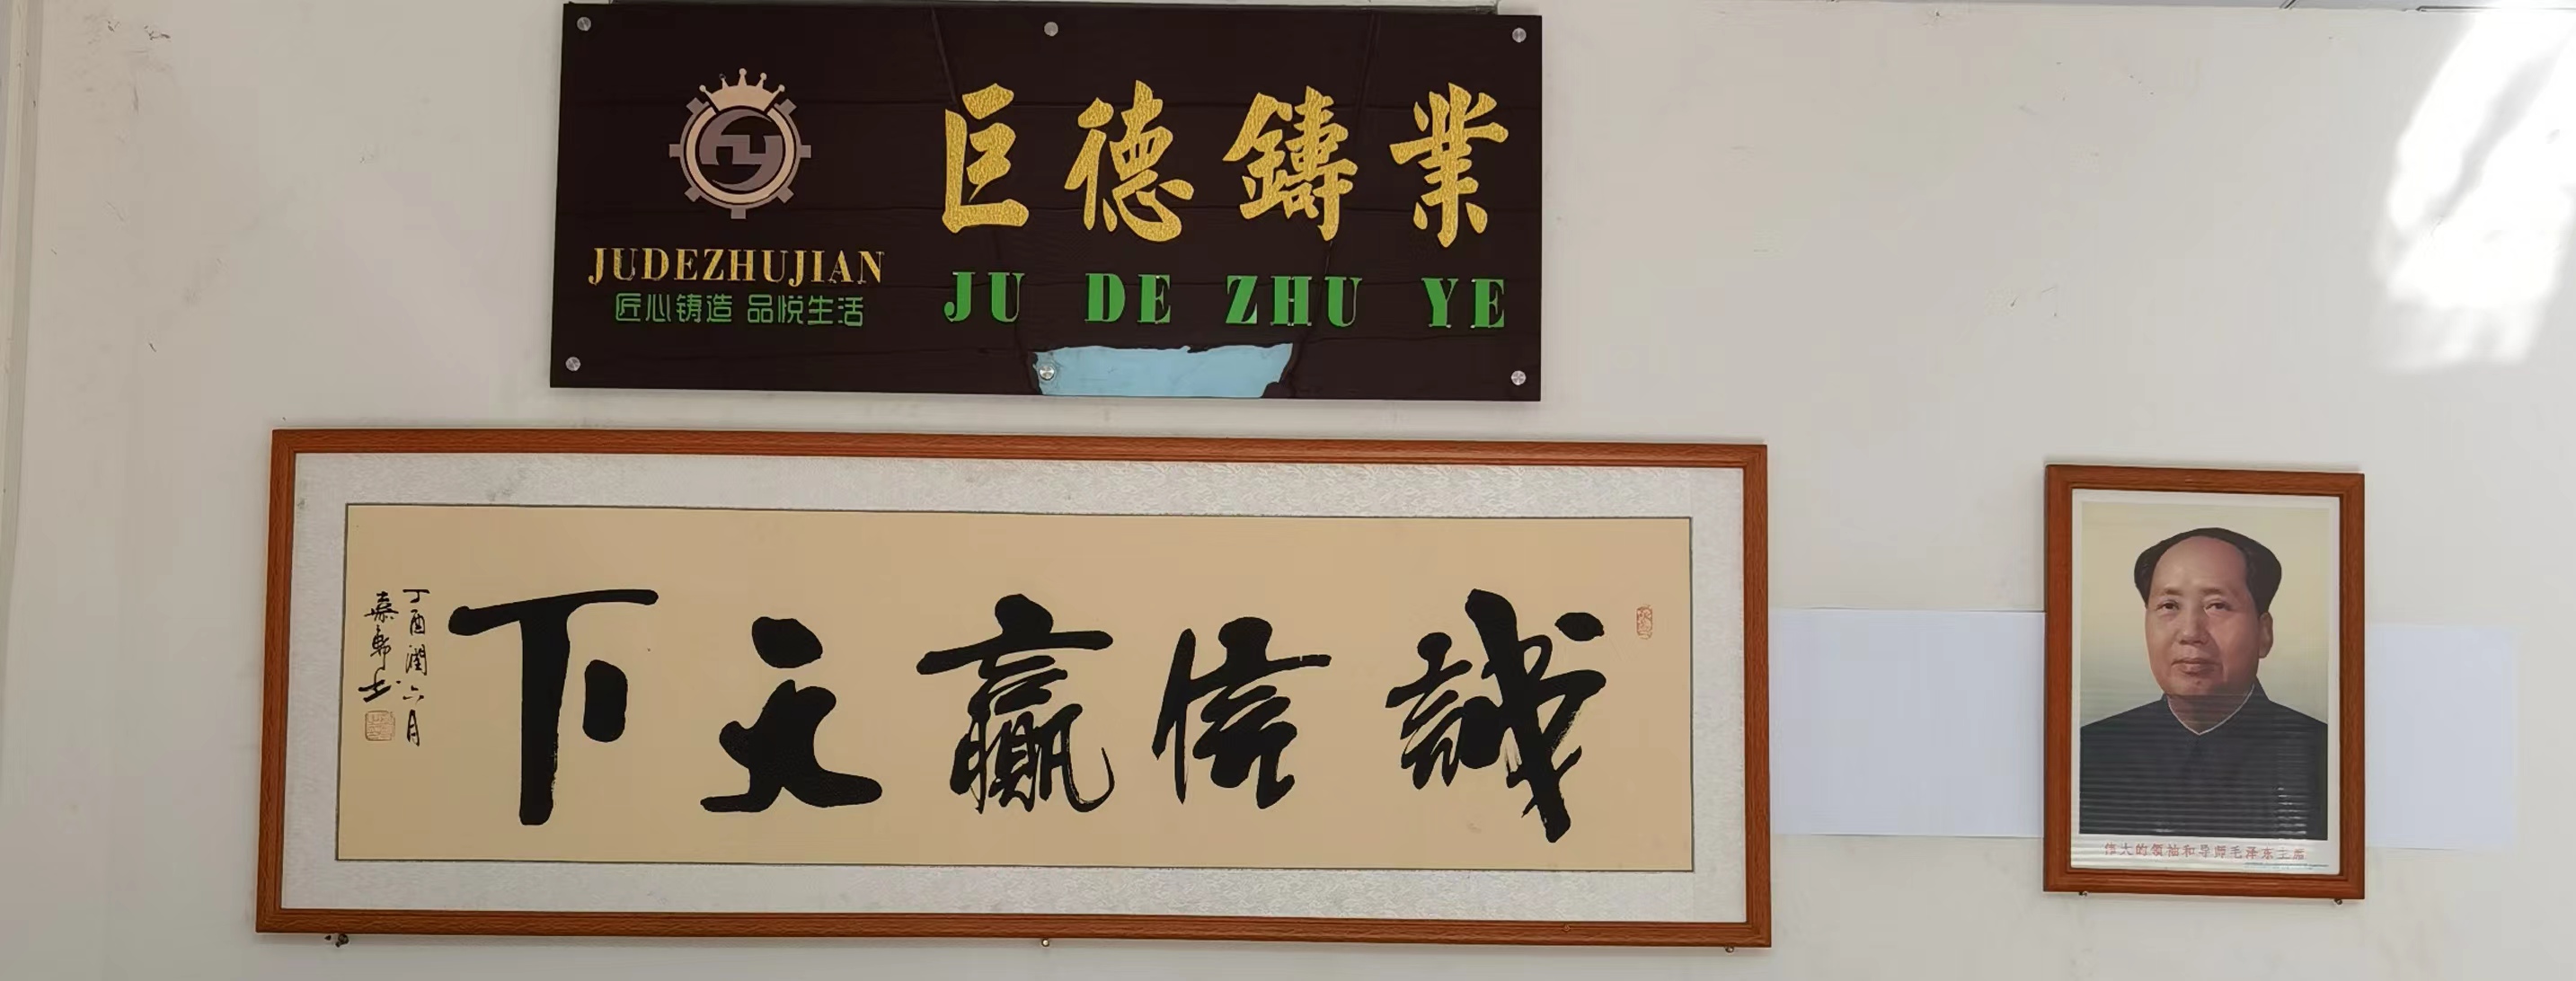 巨德鑄業
JUDEZHUJIAN
匠心铸造 品悦生活
JU DE ZHU YE
誠信贏天下
丁酉潤六月
伟大的领袖和导师毛泽东主席